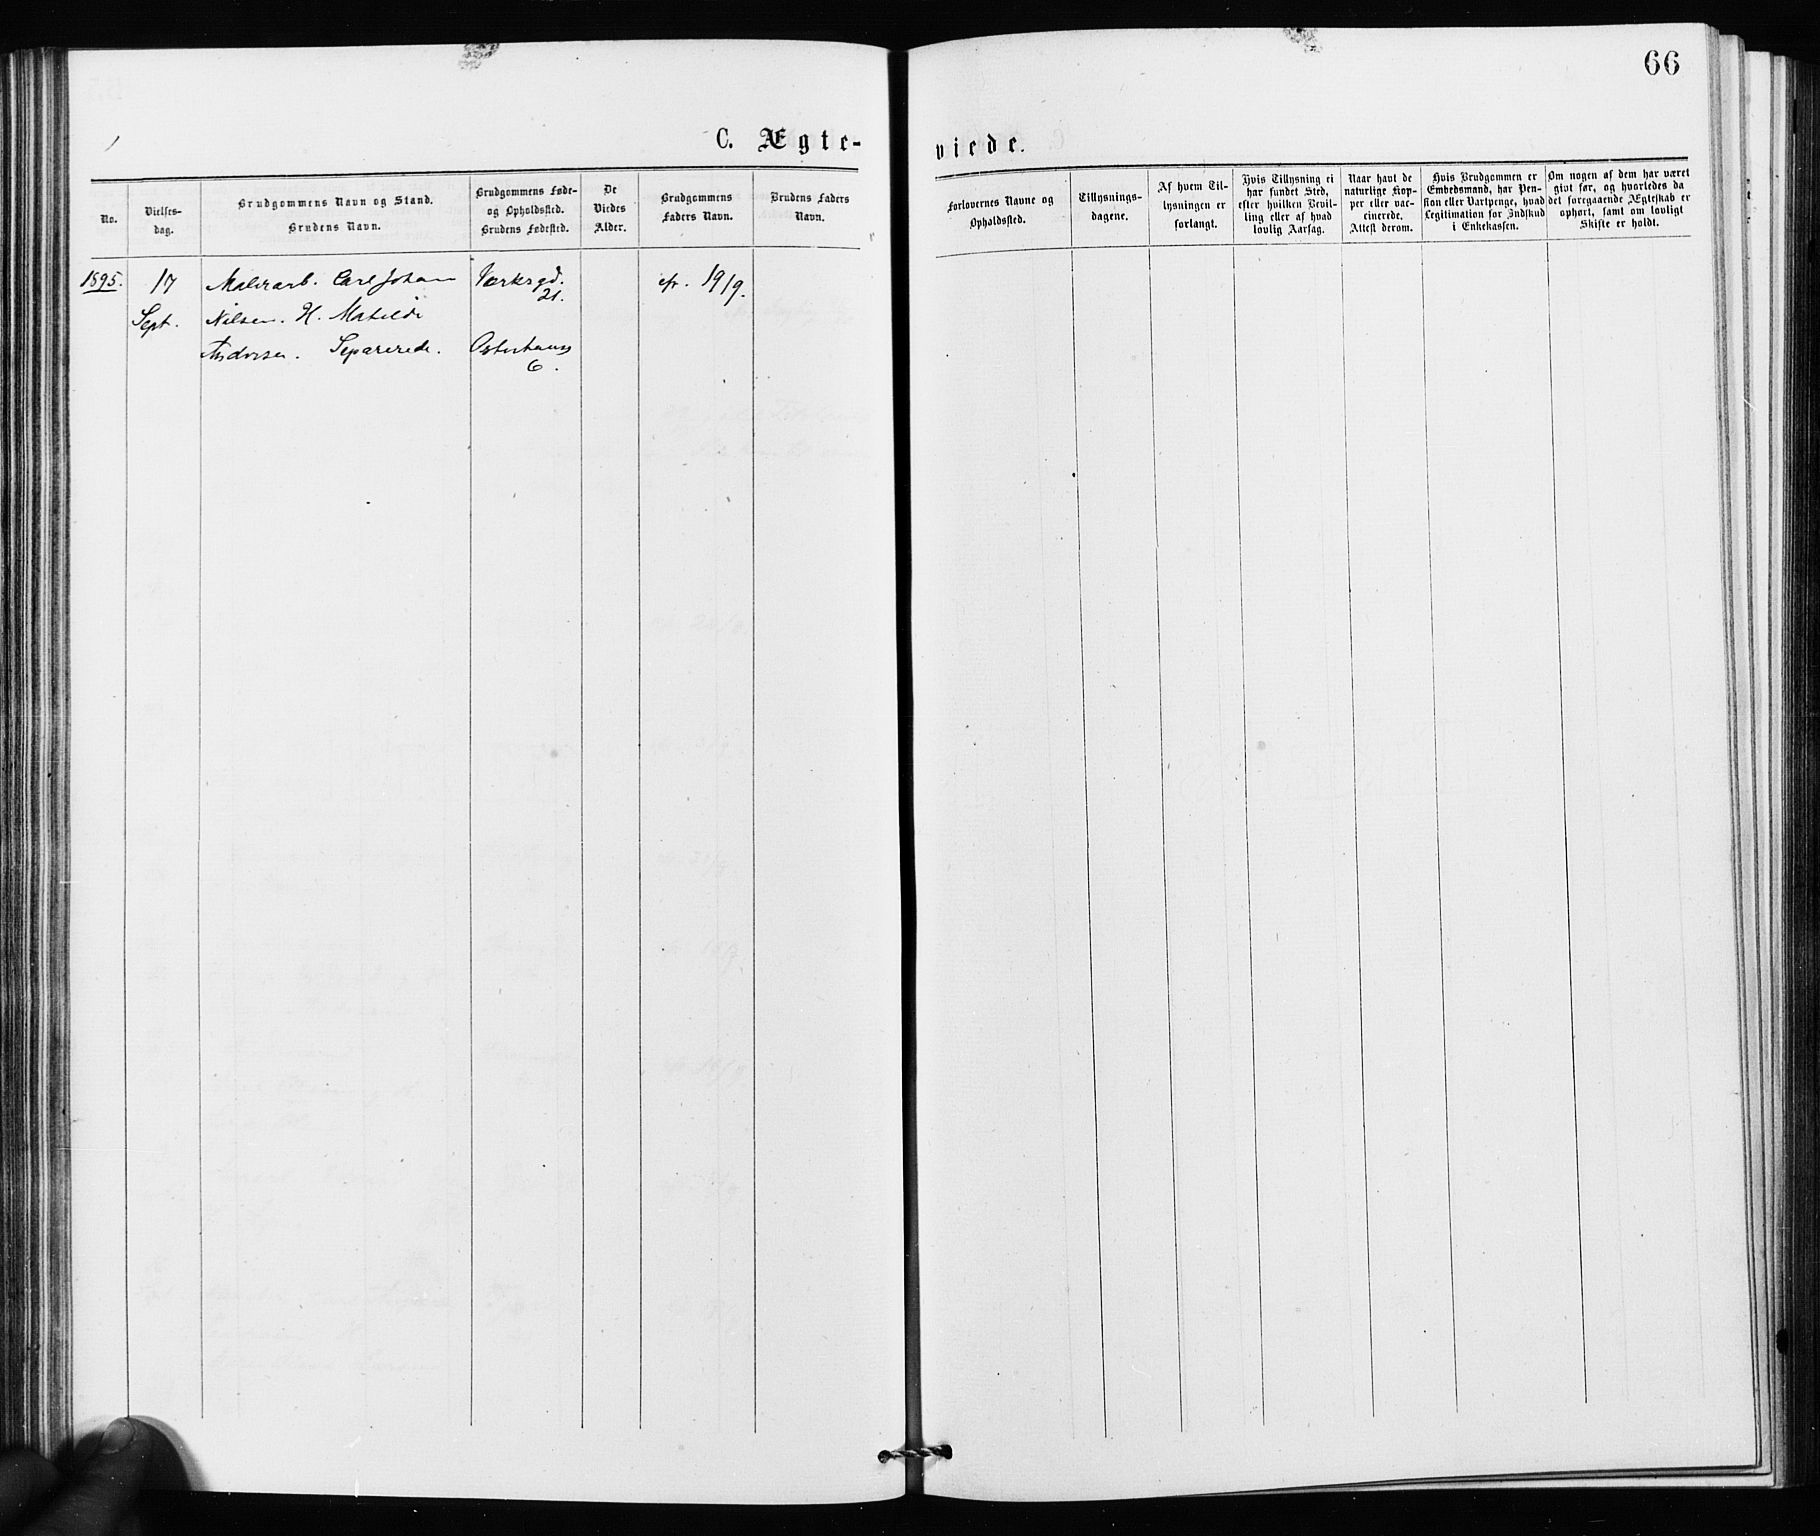 66
C. Ægte-
viede.
No.
Vielses-
dag.
Brudgommens Navn og Stand.
Brudens Navn.
Brudgommens Føde-
og Opholdssted.
Brudens Fødested.
De
Viedes
Alder.
Brudgommens
Faders Navn.
Brudens Faders
Navn.
Forlovernes Navne og
Opholdssted.
Tillysnings-
dagene.
Af hvem Til-
lysningen er
forlangt.
Hvis Tillysning ei
har fundet Sted,
efter hvilken Bevil-
ling eller af hvad
lovlig Aarsag.
Naar havt de
naturlige Kop-
per eller vac-
cinerede.
Attest derom.
Hvis Brudgommen er
Embedsmand, har Pen-
sion eller Vartpenge, hvad
Legitimation for Indskud
i Enkekassen.
Om nogen af dem har været
givt før, og hvorledes da
det foregaaende Ægteskab er
ophørt, samt om lovligt
Skifte er holdt.
1895. 17 Malerarb. Carl Johan 19/9.
21.
Sept. Nilsen. H. Matilde
Andersen. Separerede.
6.